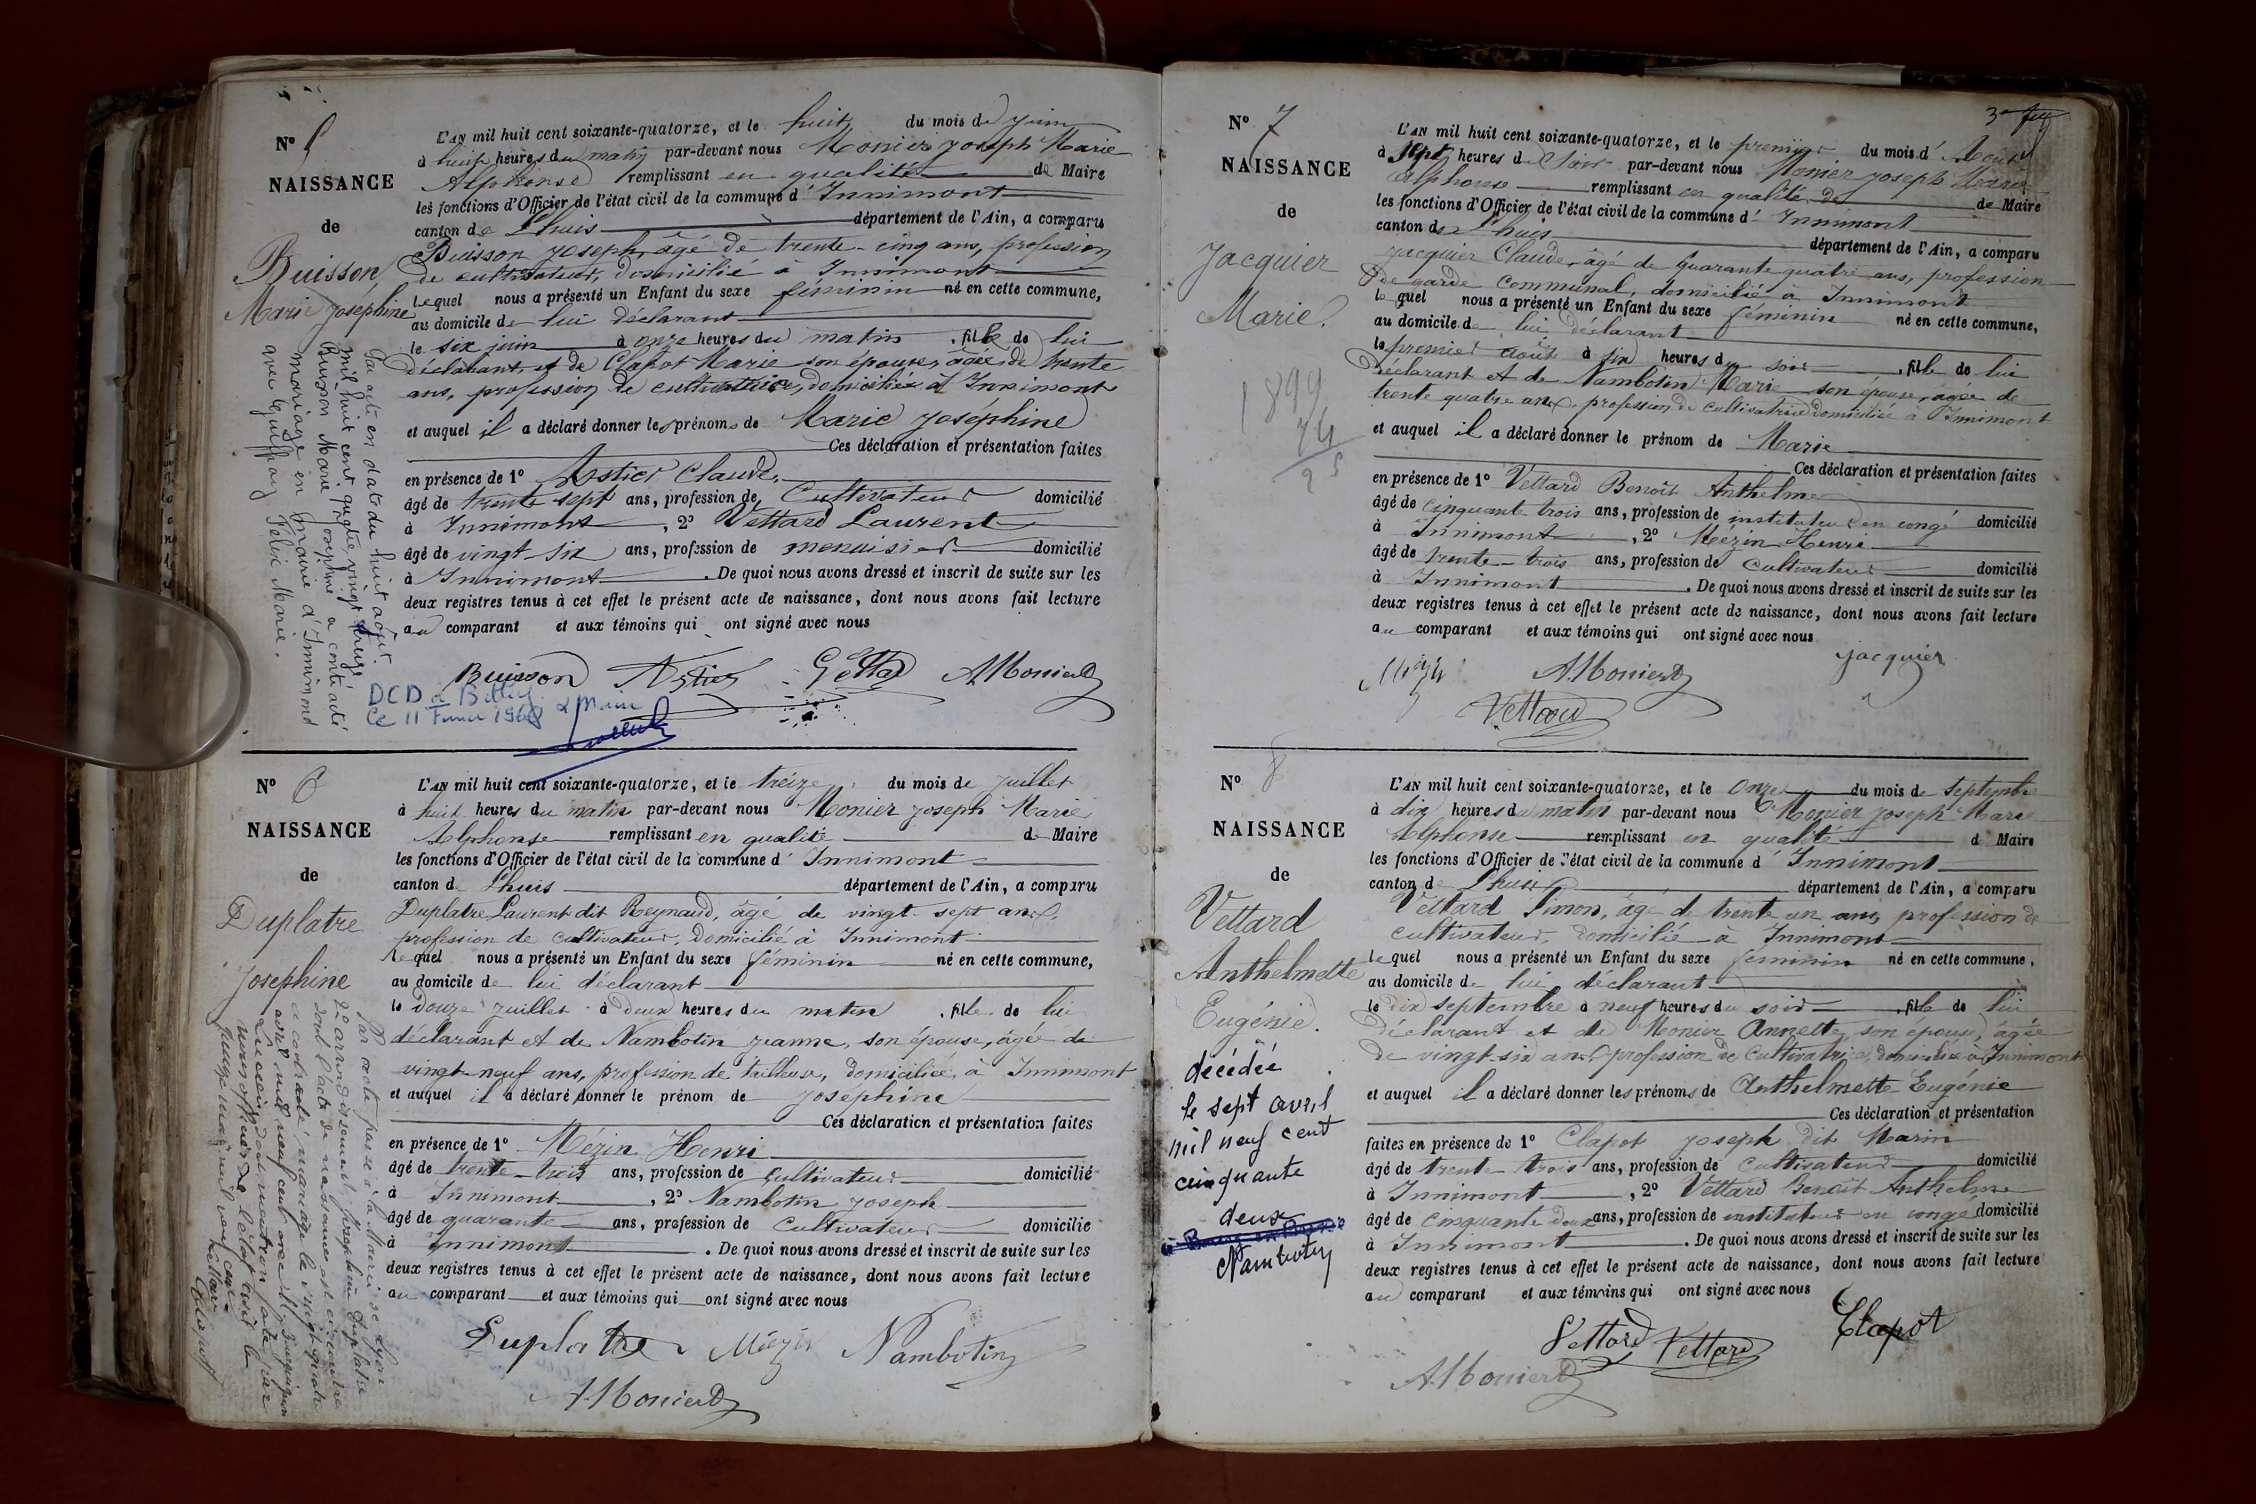 N° 5
NAISSANCE
de
Buisson,
Marie Joséphine
L'AN mil huit cent soixante-quatorze, et le huit du mois de juin
à huit heures du matin par-devant nous Monier Joseph Marie
Alphonse remplissant en qualité de Maire
les fonctions d'Officier de l'état civil de la commune d' Innimont
canton de Lhuis département de l'Ain, a comparu
Buisson Joseph, âgé de trente-cinq ans, profession
de cultivateur, domicilié à Innimont
lequel nous a présenté un Enfant du sexe féminin né en cette commune,
au domicile de lui déclarant
le six juin à onze heures du matin, fille de lui
déclarant et de Clapot Marie son épouse, âgée de trente
ans, profession de cultivatrice, domiciliée à Innimont
et auquel il a déclaré donner les prénoms de Marie Joséphine
Ces déclaration et présentation faites
en présence de 1° Astier Claude,
âgé de trente sept ans, profession de Cultivateur domicilié
à Innimont, 2° Vettard Laurent
âgé de vingt-six ans, profession de menuisier domicilié
à Innimont. De quoi nous avons dressé et inscrit de suite sur les
deux registres tenus à cet effet le présent acte de naissance, dont nous avons fait lecture
au comparant et aux témoins qui ont signé avec nous
Buisson Astier Vettard A. Monier
Par acte en date du huit août
mil huit cent quatre vingt treize
Buisson Marie Joséphine a contracté
mariage en mairie d'Innimond
avec Félix Marie.
DCD à Belley
Le 11 1968 Le Maire
N° 6
NAISSANCE
de
Duplatre
Joséphine
L'AN mil huit cent soixante-quatorze, et le treize du mois de juillet
à huit heures du matin par-devant nous Monier Joseph Marie
Alphonse remplissant en qualité de Maire
les fonctions d'Officier de l'état civil de la commune d' Innimont
canton de Lhuis département de l'Ain, a comparu
Duplatre Laurent dit Reynaud, âgé de vingt-sept ans,
profession de cultivateur, domicilié à Innimont
lequel nous a présenté un Enfant du sexe féminin né en cette commune,
au domicile de lui déclarant
le Douze juillet à deux heures du matin, fille de lui
déclarant et de Nambotin Jeanne, son épouse, âgée de
vingt-neuf ans, profession de tailleuse, domiciliée, à Innimont
et auquel il a déclaré donner le prénom de Joséphine
Ces déclaration et présentation faites
en présence de 1° Mézin Henri
âgé de trente-trois ans, profession de cultivateur domicilié
à Innimont, 2° Nambotin Joseph
âgé de quarante ans, profession de cultivateur domicilié
à Innimont. De quoi nous avons dressé et inscrit de suite sur les
deux registres tenus à cet effet le présent acte de naissance, dont nous avons fait lecture
au comparant et aux témoins qui ont signé avec nous
Duplatre Mézin Nambotin
A. Monier
Par acte passé à la Mairie de Lyon
2e arrondissement, Joséphine Duplatre
dont l'acte de naissance est ci-contre
a contracté mariage le vingt quatre
avril mil neuf cent avec
N° 7
NAISSANCE
de
Jacquier
Marie.
1899
74
25
L'AN mil huit cent soixante-quatorze, et le premier du mois d' Août
à sept heures du soir par-devant nous Monier Joseph Marie
Alphonse remplissant en qualité de de Maire
les fonctions d'Officier de l'état civil de la commune d' Innimont
canton de Lhuis département de l'Ain, a comparu
Jacquier Claude, âgé de quarante quatre ans, profession
de garde communal, domicilié à Innimont
lequel nous a présenté un Enfant du sexe féminin né en cette commune,
au domicile de lui déclarant
le premier août à six heures du soir, fille de lui
déclarant et de Nambotin Marie son épouse, âgée de
trente quatre ans, profession de cultivatrice domiciliée à Innimont
et auquel il a déclaré donner le prénom de Marie
Ces déclaration et présentation faites
en présence de 1° Vettard Benoît Anthelme
âgé de cinquante trois ans, profession de instituteur en congé domicilié
à Innimont, 2° Mézin Henri
âgé de trente-trois ans, profession de cultivateur domicilié
à Innimont. De quoi nous avons dressé et inscrit de suite sur les
deux registres tenus à cet effet le présent acte de naissance, dont nous avons fait lecture
au comparant et aux témoins qui ont signé avec nous
Mézin A. Monier Jacquier
Vettard
N° 8
NAISSANCE
de
Vettard
Anthelmette
Eugénie.
décédée
le sept avril
mil neuf cent
cinquante
deux
Nambotin
L'AN mil huit cent soixante-quatorze, et le onze du mois de septembre
à dix heures du matin par-devant nous Monier Joseph Marie
Alphonse remplissant en qualité d Maire
les fonctions d'Officier de l'état civil de la commune d' Innimont
canton de Lhuis département de l'Ain, a comparu
Vettard Simon, âgé de trente un ans, profession de
cultivateur, domicilié à Innimont
lequel nous a présenté un Enfant du sexe féminin né en cette commune,
au domicile de lui déclarant
le dix septembre à neuf heures du soir, fille de lui
déclarant et de Monier Annette, son épouse, âgée
de vingt-six ans, profession de cultivatrice, domiciliée à Innimont
et auquel il a déclaré donner les prénoms de Anthelmette Eugénie
Ces déclaration et présentation
faites en présence de 1° Clapot Joseph dit Marin
âgé de trente trois ans, profession de cultivateur domicilié
à Innimont, 2° Vettard Benoît Anthelme
âgé de cinquante deux ans, profession de instituteur en congé domicilié
à Innimont. De quoi nous avons dressé et inscrit de suite sur les
deux registres tenus à cet effet le présent acte de naissance, dont nous avons fait lecture
au comparant et aux témoins qui ont signé avec nous
Vettard Vettard Clapot
A. Monier